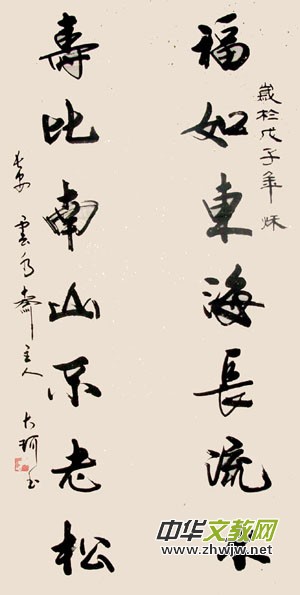 歲於戊子年秋
福如東海長流水
壽比南山不老松
雲水齋主人
中华文教网
www.zhwjw.net